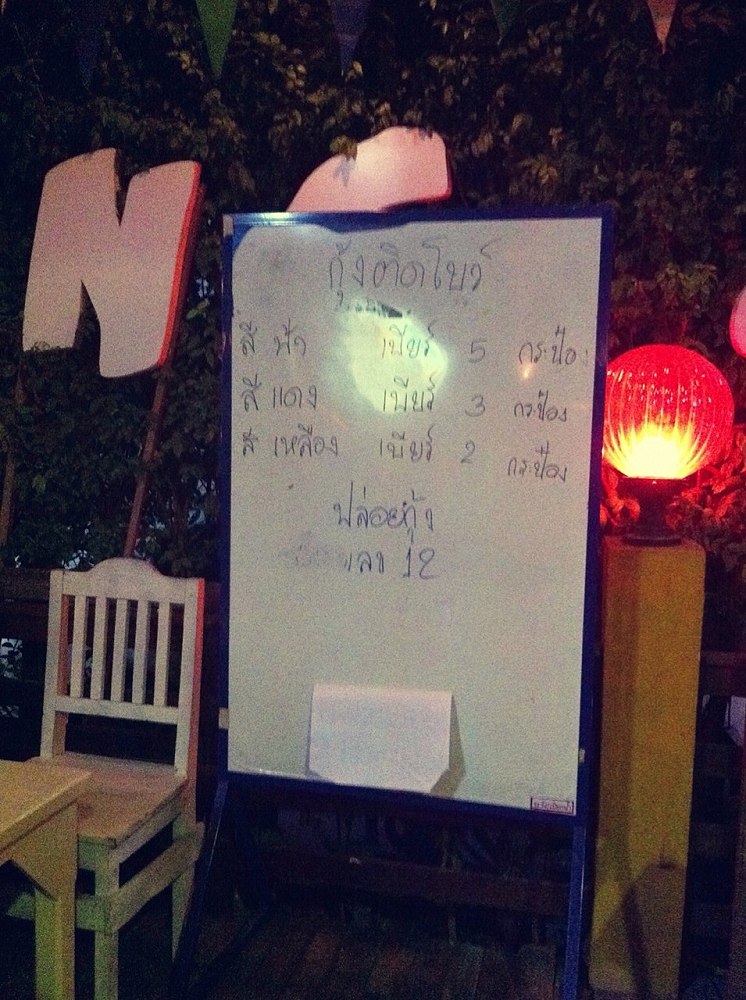 N
กุ้งติดโบว์
สี ฟ้า เบียร์ 5 กระป๋อง
สี แดง เบียร์ 3 กระป๋อง
สี เหลือง เบียร์ 2 กระป๋อง
ปล่อยกุ้ง
12